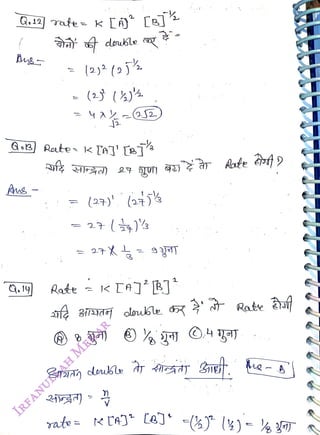 Q.12 rate = K [A]² [B]^-1/2
दोनों को double कर दें -
Ans -
= (2)² (2)^-1/2
= (2)² (1/2)^1/2
= 4 × 1/√2 = 2√2
Q.13 Rate = K [A]¹ [B]^-1/3
यदि सान्द्रता 27 गुणा बढ़ा दें तो Rate होगी?
Ans -
= (27)¹ (27)^-1/3
= 27 (1/27)^1/3
= 27 × 1/3 = 9 गुना
Q.14 Rate = K [A]² [B]¹
यदि आयतन double कर दें तो Rate होगी
(A) 8 गुनी (B) 1/8 गुना (C) 4 गुना
आयतन double तो सान्द्रता आधी. Ans - B
सान्द्रता = n/V
rate = K [A]² [B]¹ = (1/2)² (1/2) = 1/8 गुना
IRFANULLAH MEHAR